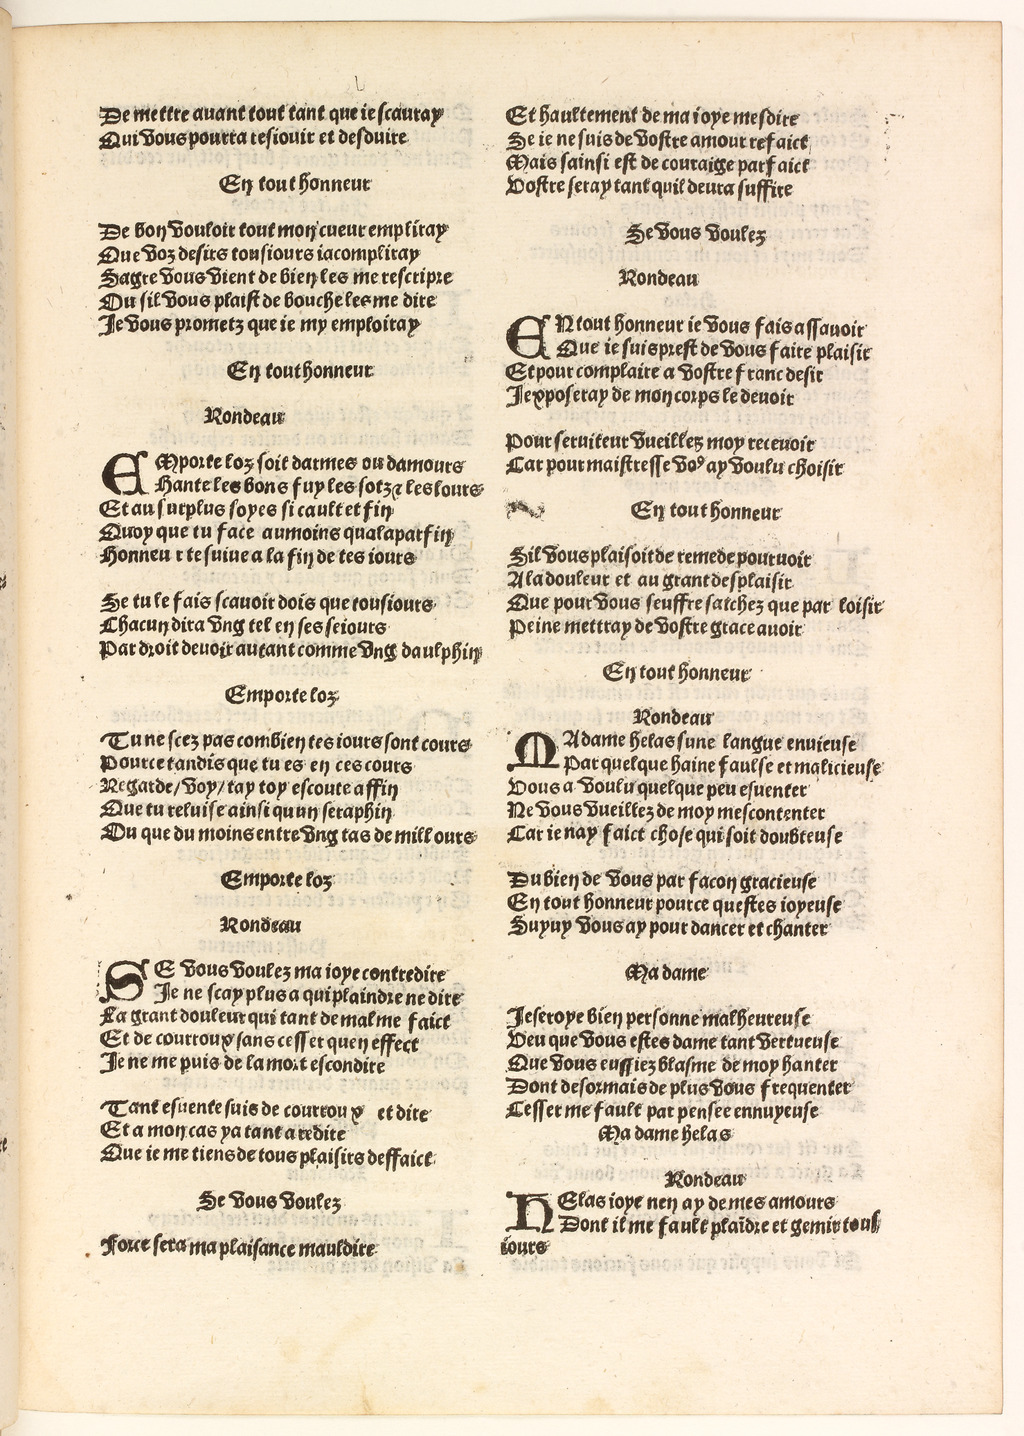 De mettre auant tout tant que ie scauray
Qui vous pourra resiouir et desduire
En tout honneur
De bon vouloir tout mon cueur empliray
Que voz desirs tousiours iacompliray
Sagre vous vient de bien les me rescripre
Ou sil vous plaist de bouche les me dire
Je vous prometz que ie my emploiray
En tout honneur
Rondeau
EMporte loz soit darmes ou damours
Hante les bons fuy les sotz ⁊ les lours
Et au surplus soyes si cault et fin
Quoy que tu face aumoins qualaparfin
Honneur te suiue a la fin de tes iours
Se tu le fais scauoir dois que tousiours
Chacun dira vng tel en ses seiours
Par droit deuoir autant comme vng daulphin
Emporte loz
Tu ne scez pas combien tes iours sont cours
Pource tandis que tu es en ces cours
Regarde/ voy/ tay toy escoute affin
Que tu reluise ainsi quun seraphin
Ou que du moins entre vng tas de mill ours
Emporte loz
Rondeau
SE vous voulez ma ioye contredire
Je ne scay plus a qui plaindre ne dire
La grant douleur qui tant de mal me faict
Et de courroux sans cesser quen effect
Je ne me puis de la mort escondire
Tant esuente suis de courroux et dire
Et a mon cas ya tant a redire
Que ie me tiens de tous plaisirs deffaict
Se vous voulez
Force sera ma plaisance mauldire
Et haultement de ma ioye mesdire
Se ie ne suis de vostre amour refaict
Mais sainsi est de couraige parfaict
Vostre seray tant quil deura suffire
Se vous voulez
Rondeau
EN tout honneur ie vous fais assauoir
Que ie suis prest de vous faire plaisir
Et pour complaire a vostre franc desir
Jexposeray de mon corps le deuoir
Pour seruiteur vueillez moy receuoir
Car pour maistresse voꝰ ay voulu choisir
En tout honneur
Sil vous plaisoit de remede pouruoir
A la douleur et au grant desplaisir
Que pour vous seuffre saichez que par loisir
Peine mettray de vostre grace auoir
En tout honneur
Rondeau
MAdame helas sune langue enuieuse
Par quelque haine faulse et malicieuse
Vous a voulu quelque peu esuenter
Ne vous vueillez de moy mescontenter
Car ie nay faict chose qui soit doubteuse
Du bien de vous par facon gracieuse
En tout honneur pource questes ioyeuse
Suyuy vous ay pour dancer et chanter
Ma dame
Je seroye bien personne malheureuse
Veu que vous estes dame tant vertueuse
Que vous eussiez blasme de moy hanter
Dont desormais de plus vous frequenter
Cesser me fault par pensee ennuyeuse
Ma dame helas
Rondeau
HElas ioye nen ay de mes amours
Dont il me fault plaĩdre et gemir tous
iours